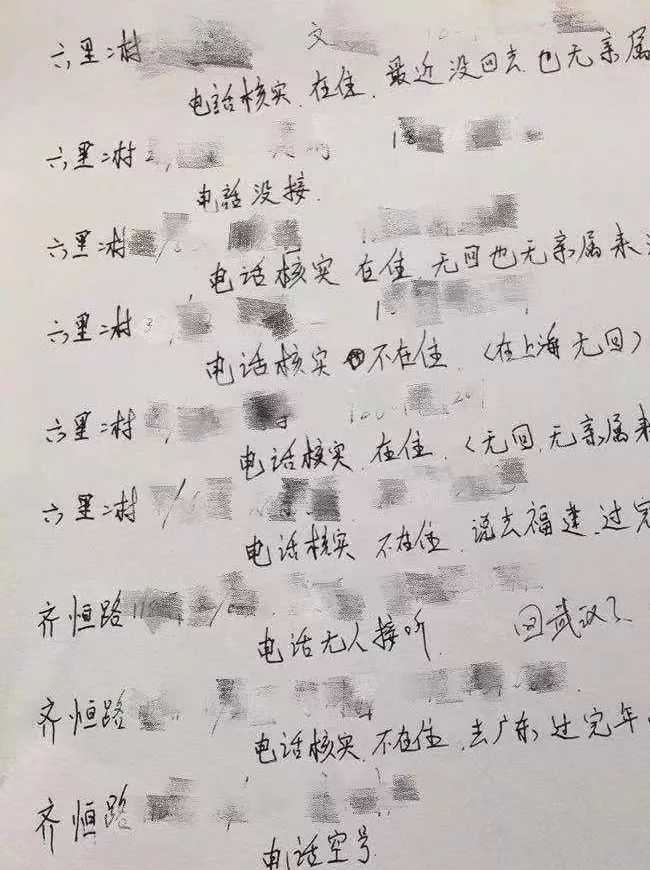 六里二村 文
电话核实.在住.最近没回去也无亲属
六里二村
电话没接.
六里二村
电话核实 在住.无回也无亲属来
六里二村
电话核实 不在住.(在上海无回)
六里二村
电话核实.在住.(无回.无亲属来
六里二村
电话核实 不在住.说去福建.过完
齐恒路
电话无人接听. 回武汉了
齐恒路
电话核实.不在住.去广东过完年
齐恒路
电话空号